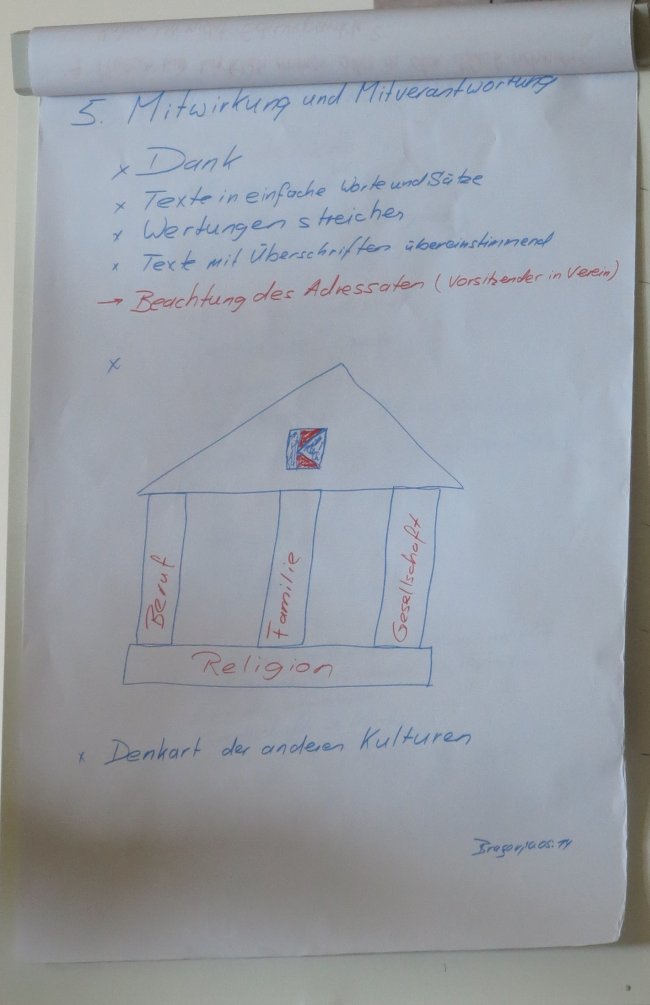 5. Mitwirkung und Mitverantwortung
x Dank
x Texte in einfache Worte und Sätze
x Wertungen streichen
x Texte mit Überschriften übereinstimmend
→ Beachtung des Adressaten (Vorsitzender in Verein)
x
K
Beruf
Familie
Gesellschaft
Religion
x Denkart der anderen Kulturen